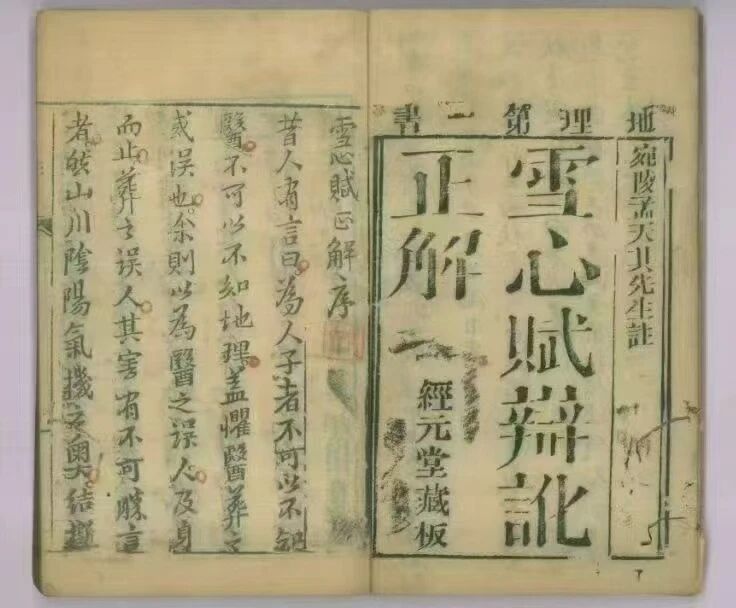 地理第二書
宛陵孟天其先生註
雪心賦辯訛
正解
經元堂藏板
雪心賦正解序
昔人有言曰為人子者不可以不知
醫不可以不知地理蓋懼醫葬之
或误也余則以為醫之误人及身
而止葬之误人其害有不可勝言
者然山川陰陽氣機之奧结撰